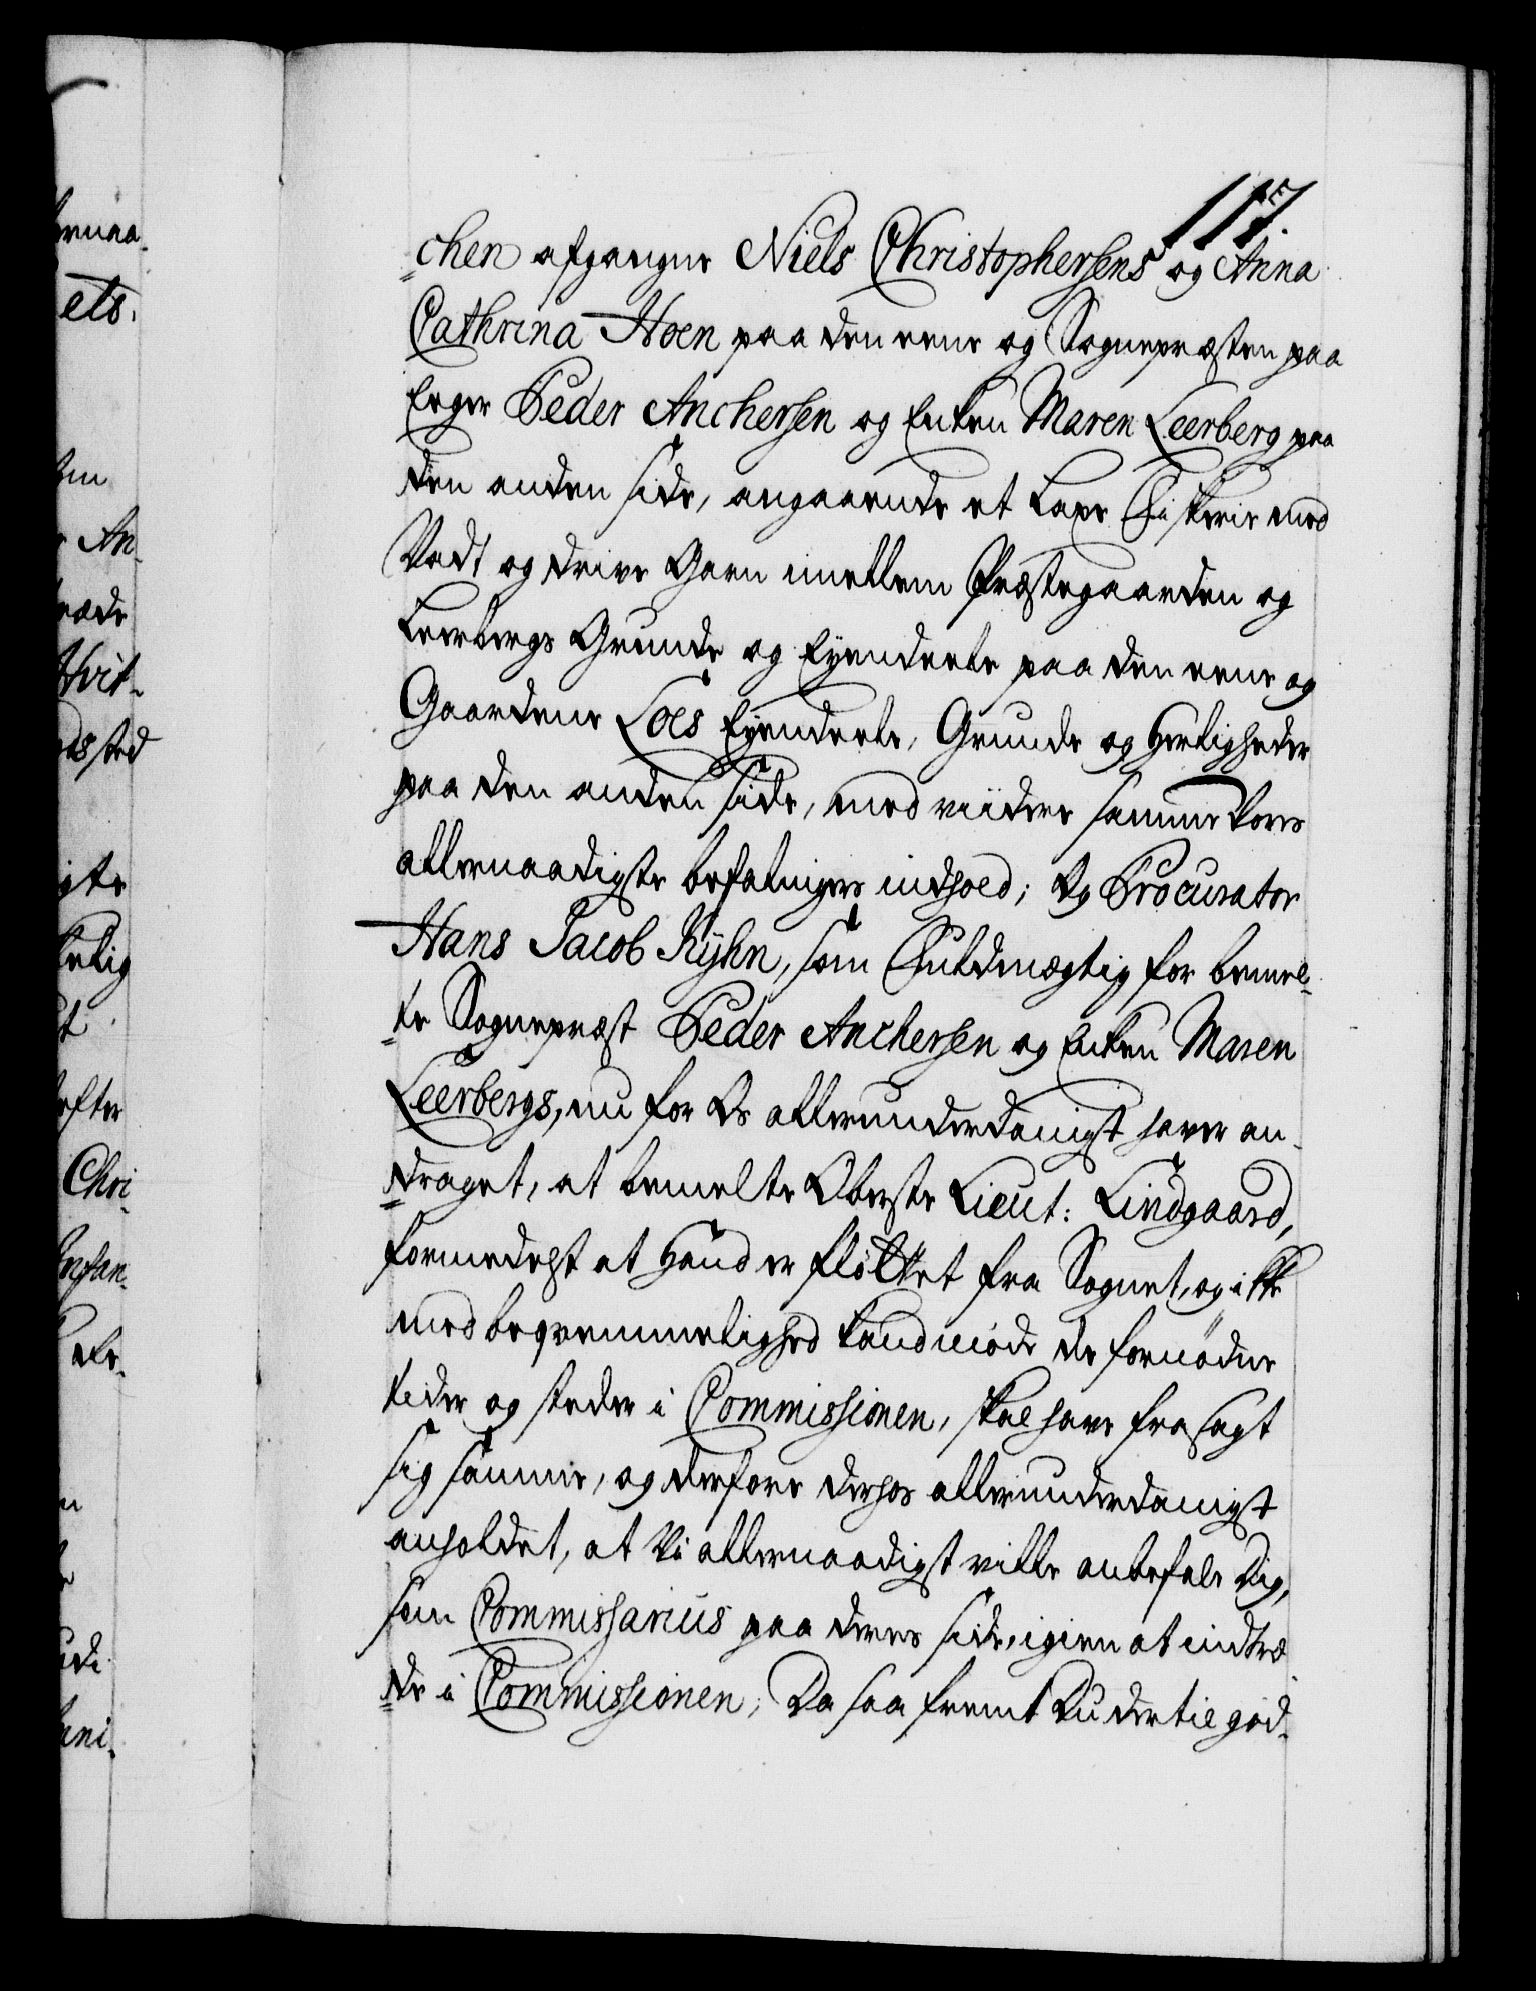 117.
=chen afgangne Niels Christophersens og Anna
Cathrina Hoen paa den eene og Sognepræsten paa
Eeger Peder Anchersen og Enken Maren Leerberg paa
den anden side, angaaende et Laxe Fiskerie med
Vadt og drive Garn imellem Præstegaarden og
Leerbergs Grunde og Eyendeele paa den eene og
Gaardene Loes Eyendeele, Grunde og Herligheder
paa den anden side, med viidere samme Vores
allernaadigste befalnigers indhold; Og Procurator
Hans Jacob Kyhn, som Fuldmægtig for bemel-
=te Sognepræst Peder Anchersen og Enken Maren
Leerbergs, nu for Os allerunderdanigst haver an-
=draget, at bemelte Oberste Lieut: Lindgaard,
formedelst at Hand er fløttet fra Sognet, og ikke
med beqvemmelighed kand møde de fornødne
tider og steder i Commissionen, skal have frasagt
sig samme, og derfore derhos allerunderdanigst
anholdet, at Vi allernaadigst ville anbefale Dig,
som Commissarius paa deres side, igien at indtræ
=de i Commissionen; Da saa fremt Du dertil god-
ernaa-
ets.
An-
træde
Hvit-
sted
igte
kelig
efter
Chri-